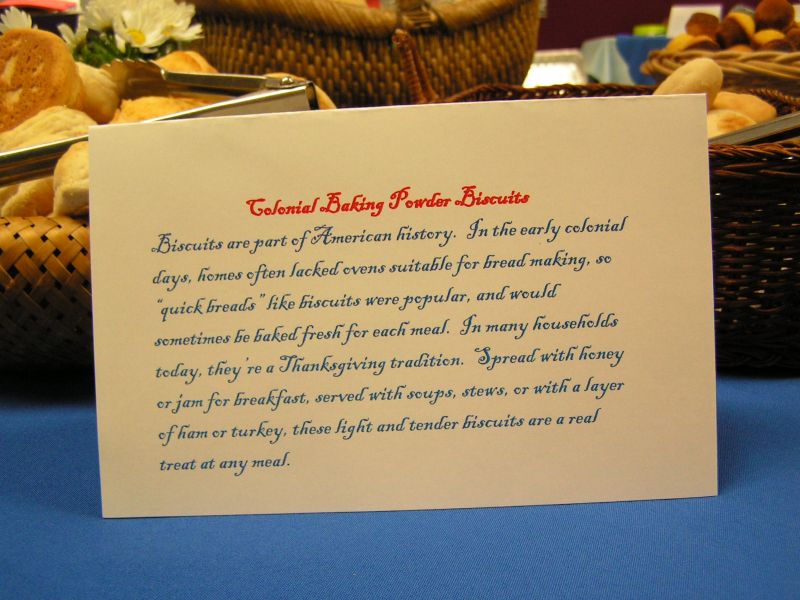 Colonial Baking Powder Biscuits
Biscuits are part of American history. In the early colonial
days, homes often lacked ovens suitable for bread making, so
"quick breads" like biscuits were popular, and would
sometimes be baked fresh for each meal. In many households
today, they're a Thanksgiving tradition. Spread with honey
or jam for breakfast, served with soups, stews, or with a layer
of ham or turkey, these light and tender biscuits are a real
treat at any meal.